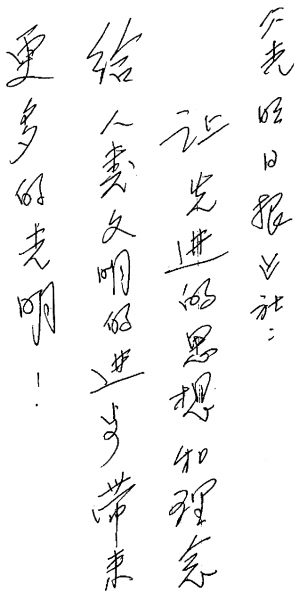 《光明日报》社：
让先进的思想和理念
给人类文明的进步带来
更多的光明！